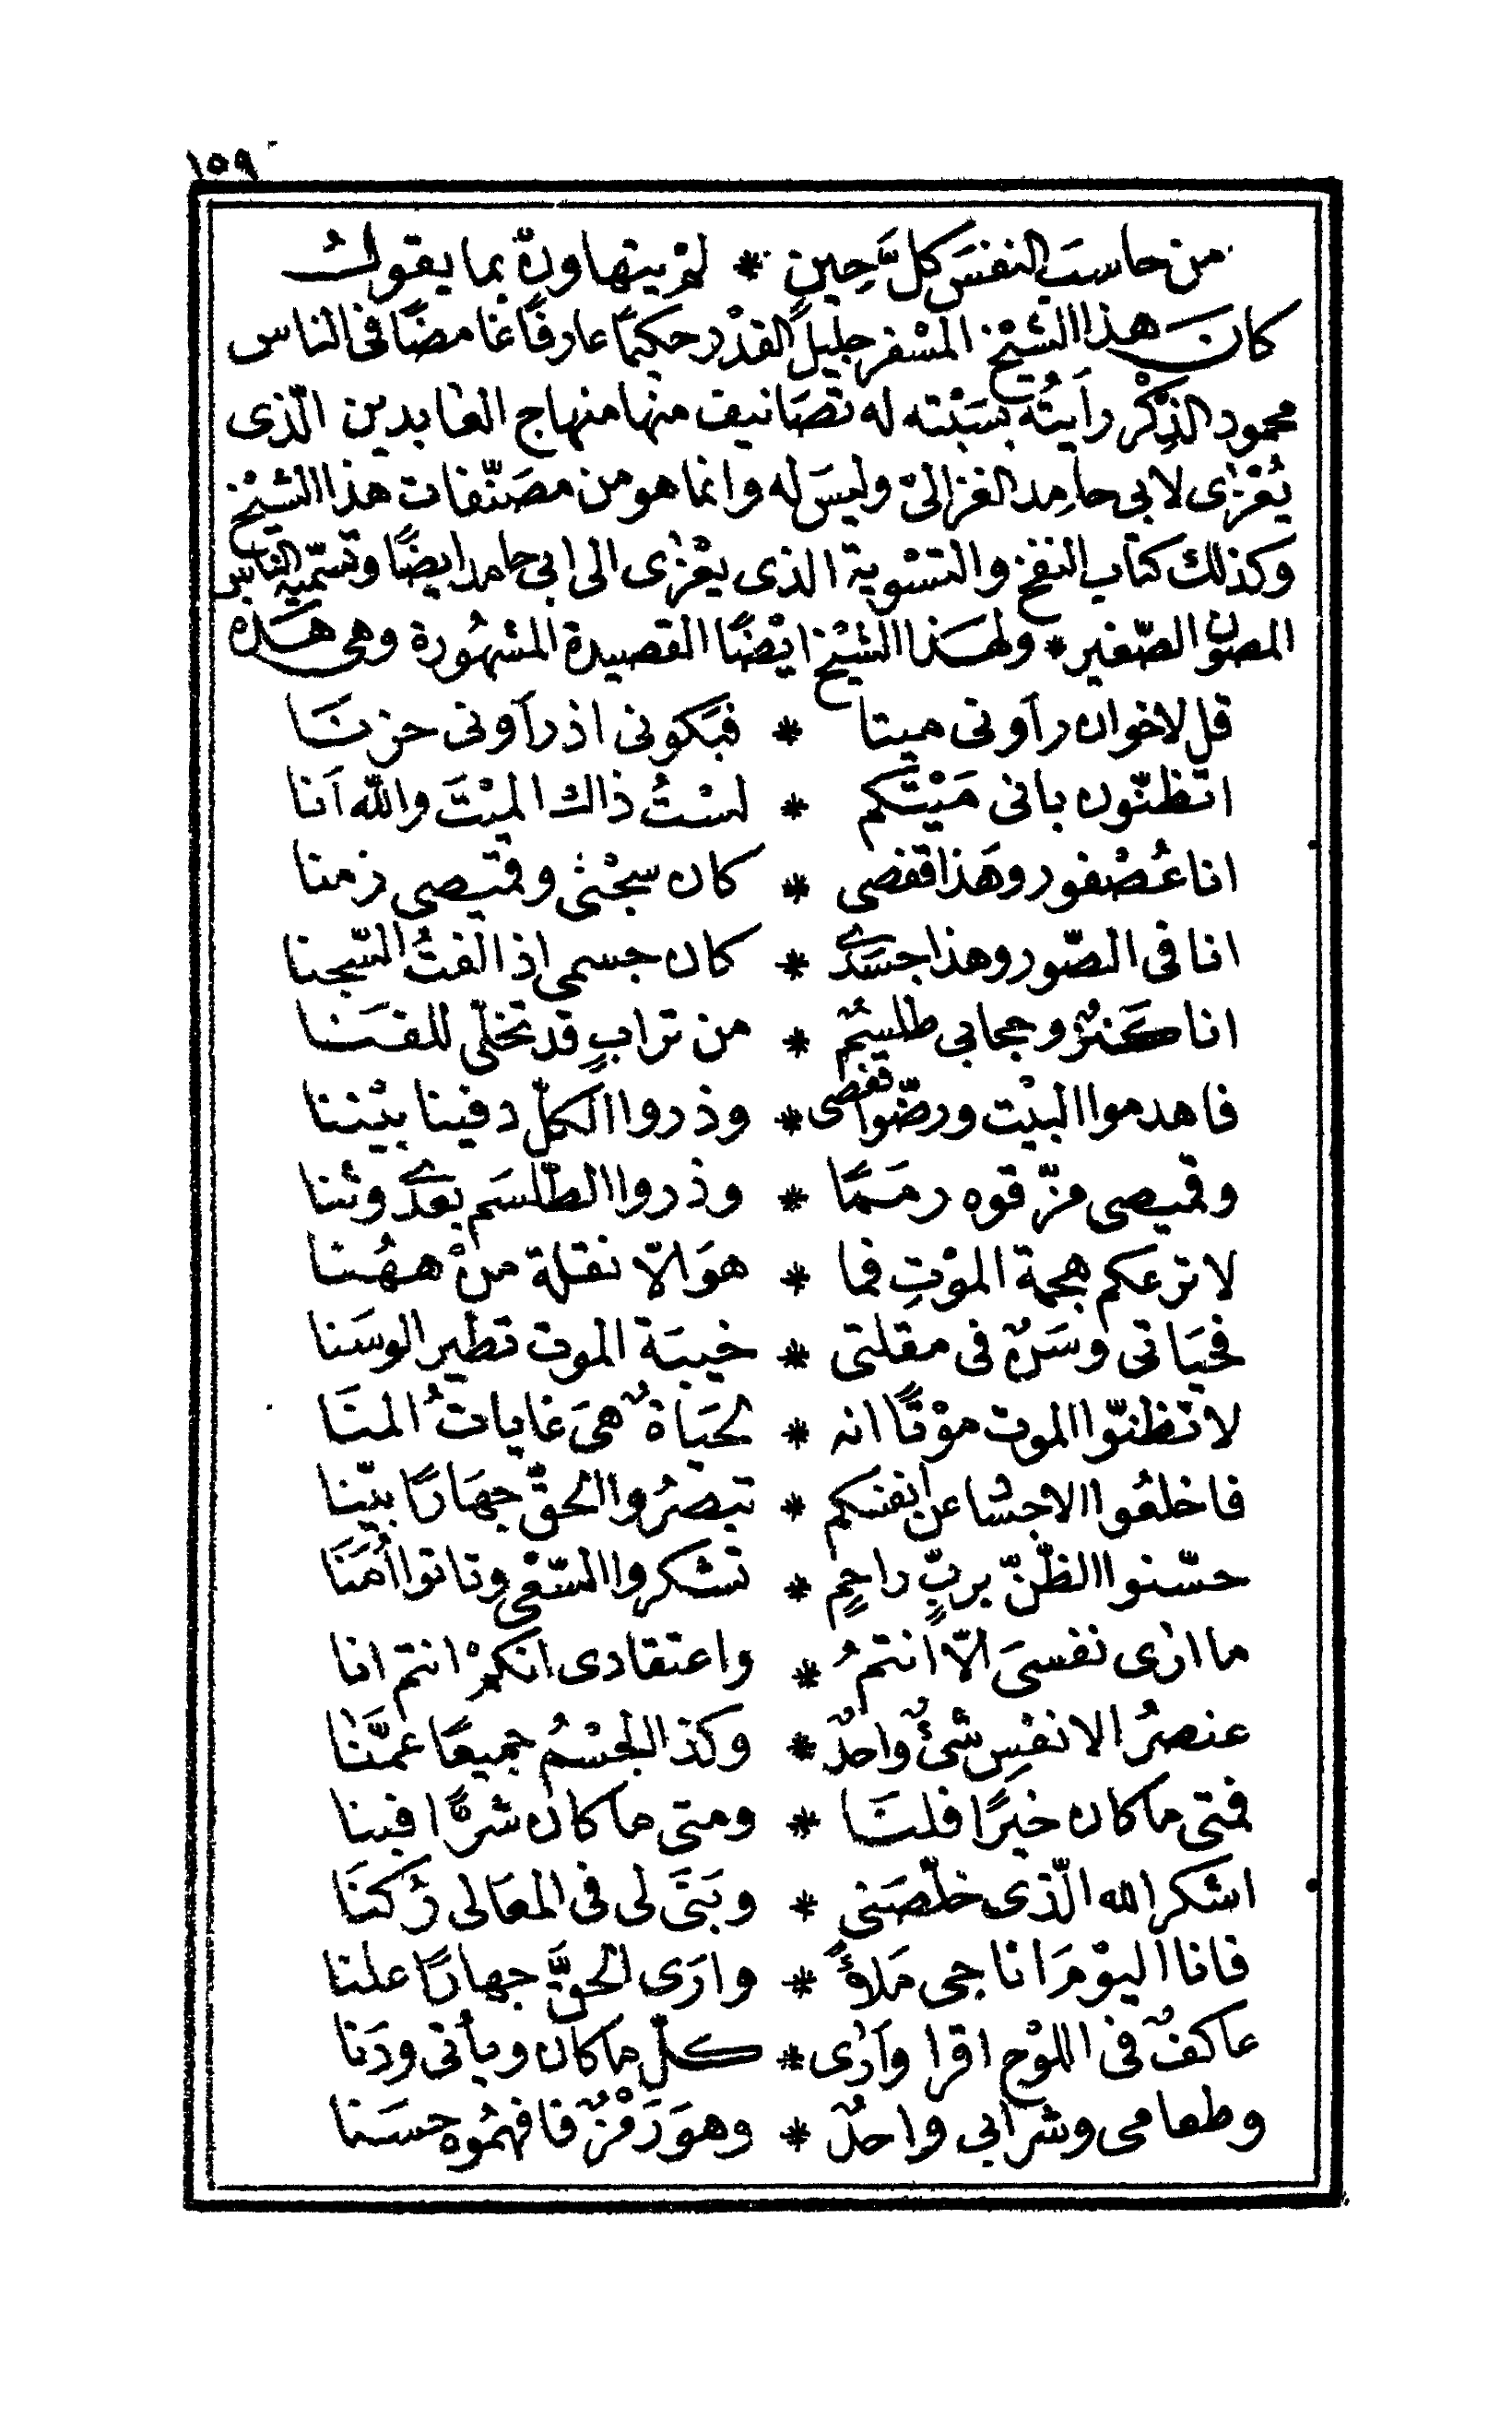 ١٥٩
من حاسبَ النفسَ كلَّ حِينٍ * لم يتهاون بما يقولُ
كان هذا الشيْخ المسْفر جليلَ القدْر حكيمًا عارفًا غامضًا فى الناس
محمود الذِكْر رأيتُه بسَبْتته له تصَانيف منها منهاج العابدين الّذى
يُعْزٰى لابي حامِد الغزالىّ وليسَ له وانما هو من مصَنّفات هذا الشيْخ
وكذلك كتاب النفخ والتسْوية الذى يعْزٰى الى ابي حامد ايضًا وتسّميه الناس
المصنون الصّغير * ولهذا الشيْخ ايْضًا القصيدة المشهُورة وهى هَذه
قل لاخوان رأونى ميتا * فبَكونى اذ رأونى حزنَا
اتظنّون بانى مَيْتَكم * لسْتُ ذاك الميْتَ والله اَنا
انا عُصْفور وهَذا قفصى * كان سجْنى وقميصى زمنا
انا فى الصّور وهذا جسَدى * كان جسمى اذ الفتُ السّجنا
انا كَنزٌ وحجابي طلسْمٌ * من ترابٍ قد تخلّى للفَنا
فاهدموا البيْت ورضّوا قفصى * وذروا الكلّ دفينا بيْننا
وقميصى مزّقوه رمَمًا * وذروا الطّلسَم بعدى وثنا
لا ترعكم هجمة الموْتِ فما * هوَ الّا نقلة منْ ههُنا
فحيَاتى وسَنٌ فى مقلتى * خيبَة الموت تطير الوسَنا
لا تظنّوا الموت موْتًا انه * لحيَاةٌ هىَ غاياتُ المنَا
فاخلعُوا الاجساد عن انفسكم * تبصرُوا الحقّ جهَارًا بيّنا
حسّنوا الظنّ بربٍّ راحمٍ * تشكروا السّعْى وتاتوا اُمَنَا
ما ارٰى نفسىَ الّا انتمُ * واعتقادى انكمْ انتم انا
عنصرُ الانفُسِ شئٌ واحدٌ * وكذا الجسْمُ جميعًا عمَّنا
فمتى ما كان خيرًا فلنَا * ومتى ما كان شرًّا فبنا
اشكر الله الّذى خلّصَنى * وبَنَى لى فى المعَالى رُكنَا
فانا اليوْمَ اناجى مَلأً * وارَى الحقَّ جهارًا علنا
عاكفٌ فى اللوْح اقرا وَارٰى * كلّ ما كان ويأتى ودَنا
وطعامى وشرابي واحدٌ * وهوَ رَمْزٌ فافهمُوه حسَنا